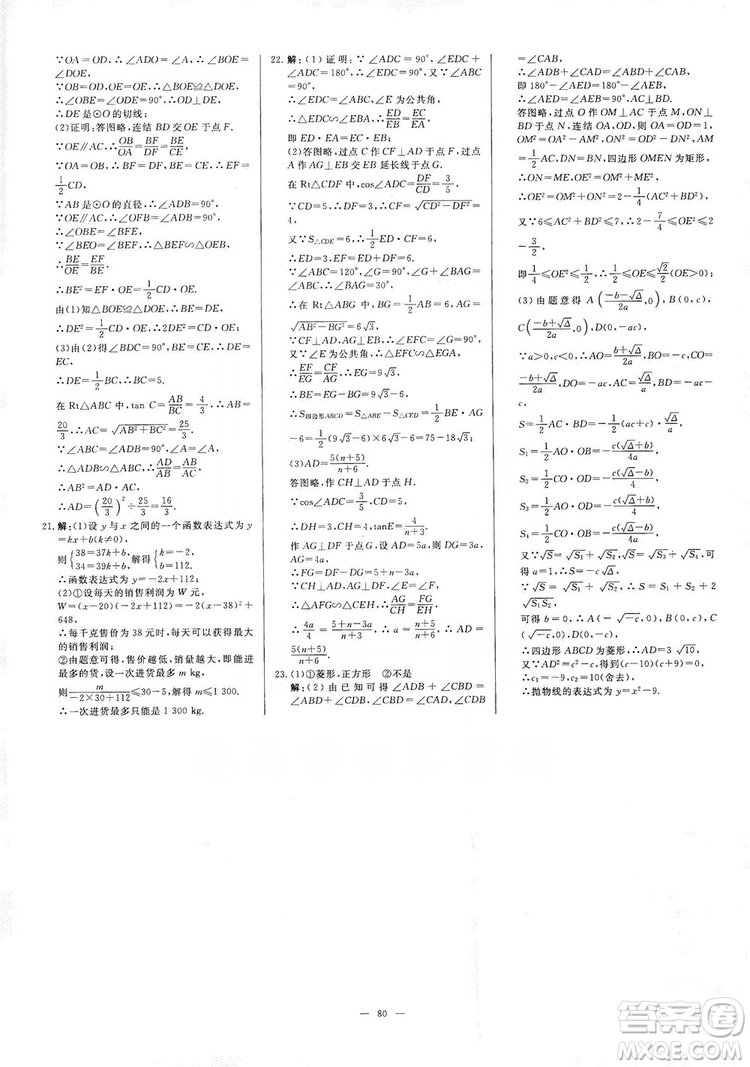 ∵OA=OD,∴∠ADO=∠A,∴∠BOE=
∠DOE.
∵OB=OD,OE=OE,∴△BOE≌△DOE,
∴∠OBE=∠ODE=90°,∴OD⊥DE,
∴DE是⊙O的切线;
(2)证明:答图略,连结BD交OE于点F.
∵OE∥AC,∴OB/OA=BF/DF=BE/CE.
∵OA=OB,∴BF=DF,BE=CE,∴EF=
1/2CD.
∵AB是⊙O的直径,∴∠ADB=90°,
∴∠OBE=∠OFB=∠BFE.
∵∠BEO=∠BEF,∴△BEF∽△OEB,
∴BE/OE=EF/BE,
∴BE²=EF·OE=1/2CD·OE.
由(1)知△BOE≌△DOE,∴BE=DE,
∴DE²=1/2CD·OE,∴2DE²=CD·OE;
(3)由(2)得∠BDC=90°,BE=CE,∴DE=
EC.
∴DE=1/2BC,∴BC=5.
在Rt△ABC中,tan C=AB/BC=4/3,∴AB=
20/3,∴AC=√(AB²+BC²)=25/3.
∵∠ADB=∠ABC=90°,∠A=∠A,
∴△ABC∽△ADB,∴AD/AB=AB/AC,
∴AB²=AD·AC,
∴AD=(20/3)²÷25/3=16/3.
21.解:(1)设y与x之间的一个函数表达式为y
=kx+b(k≠0),
则{38=37k+b,34=39k+b,解得{k=-2,b=112.
∴函数表达式为y=-2x+112;
(2)①设每天的销售利润为W元,
W=(x-20)(-2x+112)=-2(x-38)²+
648,
∴每千克售价为38元时,每天可以获得最大
的销售利润;
②由题意可得,售价越低,销量越大,即能进
最多的货,设一次进货最多m kg,
则m/(-2×30+112)≤30-5,解得m≤1 300,
∴一次进货最多只能是1 300 kg.
22.解:(1)证明:∵∠ADC=90°,∠EDC+
∠ADC=180°,∴∠EDC=90°,又∵∠ABC
=90°,
∴∠EDC=∠ABC,∠E为公共角,
∴△EDC∽△EBA,∴ED/EB=EC/EA,
即ED·EA=EC·EB;
(2)答图略,过点C作CF⊥AD于点F,过点
A作AG⊥EB交EB延长线于点G.
在Rt△CDF中,cos∠ADC=DF/CD=3/5,
∵CD=5,∴DF=3,∴CF=√(CD²-DF²)=
4,
又∵S△CDE=6,∴1/2ED·CF=6,
∴ED=3,EF=ED+DF=6.
∵∠ABC=120°,∠G=90°,∠G+∠BAG
=∠ABC,∴∠BAG=30°,
∴在Rt△ABG中,BG=1/2AB=6,AG=
√(AB²-BG²)=6√3,
∵CF⊥AD,AG⊥EB,∴∠EFC=∠G=90°,
又∵∠E为公共角,∴△EFC∽△EGA,
∴EF/EG=CF/AG,∴EG=9√3,
∴BE=EG-BG=9√3-6,
∴S四边形ABCD=S△ABE-S△CED=1/2BE·AG
-6=1/2(9√3-6)×6√3-6=75-18√3;
(3)AD=5(n+5)/(n+6).
答图略,作CH⊥AD于点H.
∵cos∠ADC=3/5,
∴DH=3,CH=4,∴tanE=4/(n+3).
作AG⊥DF于点G,设AD=5a,则DG=3a,
AG=4a,
∴FG=DF-DG=5+n-3a,
∵CH⊥AD,AG⊥DF,∠E=∠F,
∴△AFG∽△CEH,∴AG/CH=FG/EH,
∴4a/4=(5+n-3a)/(n+3),∴a=(n+5)/(n+6),∴AD=
5(n+5)/(n+6).
23.(1)①菱形,正方形 ②不是
解:(2)由已知可得∠ADB+∠CBD=
∠ABD+∠CDB,∠CBD=∠CAD,∠CDB
=∠CAB,
∴∠ADB+∠CAD=∠ABD+∠CAB,
即180°-∠AED=180°-∠AEB,
∴∠AED=∠AEB=90°,AC⊥BD.
答图略,过点O作OM⊥AC于点M,ON⊥
BD于点N,连结OA,OD,∴OA=OD=1,
OM²=OA²-AM²,ON²=OD²-DN²,AM
=1/2AC,DN=1/2BD,四边形OMEN为矩形,
∴ON=ME,OE²=OM²+ME²,
∴OE²=OM²+ON²=2-1/4(AC²+BD²),
又∵6≤AC²+BD²≤7,∴2-7/4≤OE²≤2-
3/2,
即1/4≤OE²≤1/2,∴1/2≤OE≤√2/2(OE>0);
(3)由题意得A((-b-√Δ)/2a,0),B(0,c),
C((-b+√Δ)/2a,0),D(0,-ac).
∵a>0,c<0,∴AO=(b+√Δ)/2a,BO=-c,CO=
(-b+√Δ)/2a,DO=-ac,AC=√Δ/a,BD=-ac
-c,
S=1/2AC·BD=-1/2(ac+c)·√Δ/a,
S₁=1/2AO·BO=-c(√Δ+b)/4a,
S₂=1/2CO·DO=-c(√Δ-b)/4,
S₃=1/2AO·DO=-c(√Δ+b)/4,
S₄=1/2CO·BO=-c(√Δ-b)/4a.
又∵√S=√S₁+√S₂,√S=√S₃+√S₄,可
得a=1,
∴S=-c√Δ,S₁=S₄,S₂=S₃,
∵√S=√S₁+√S₂,∴S=S₁+S₂+
2√(S₁S₂),
可得b=0,∴A(-√-c,0),B(0,c),C
(√-c,0),D(0,-c),
∴四边形ABCD为菱形,
又∵AD=3√10,∴AD²=90,
即90=c²-c,得到(c+9)(c-10)=0,
∴c₁=-9,c₂=10(舍去),
∴抛物线的表达式为y=x²-9.
— 80 —
答案圈
MXQE.COM